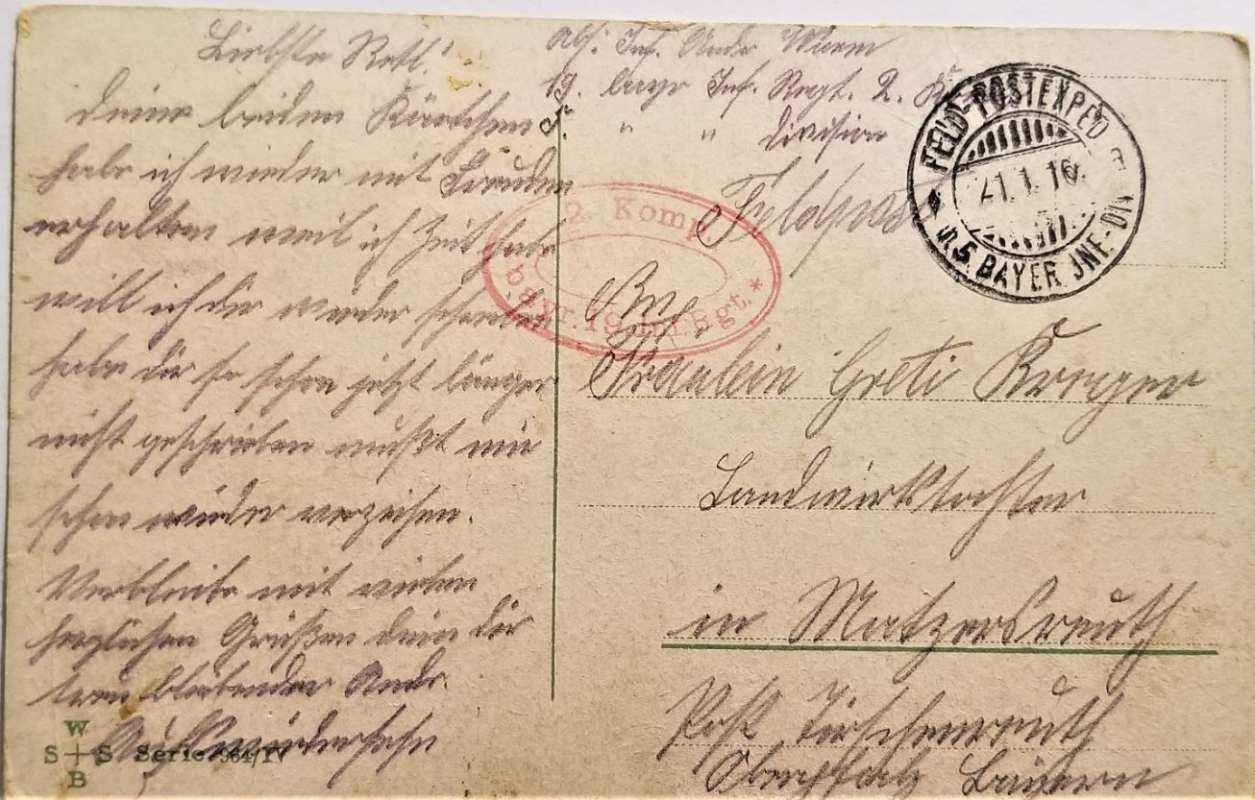 Liebste Retl!
Deine beiden Kärtchen
habe ich wieder mit Freuden
erhalten weil ich Zeit habe
will ich dir wieder schreiben
habe dir so schon jetzt länger
nicht geschrieben mußt mir
schon wieder verzeihen.
Verbleibe mit vielen
herzlichen Grüßen dein dir
treu bleibender Andr.
Auf Wiedersehn
Abs: Inf. Andr Wurm
19. bayr Inf. Regt. 2. K
5. " " Division
Feldpost
FELD-POSTEXPED
21.1.16.
D.5. BAYER. INF.-DIV
2. Komp.
bayr. 19. Inf. Rgt. *
An
Fräulein Greti Krieger
Landwirtstochter
in Matzersreuth
Post Tirschenreuth
Oberpfalz Bayern
W
S + S Serie 364/IV
B